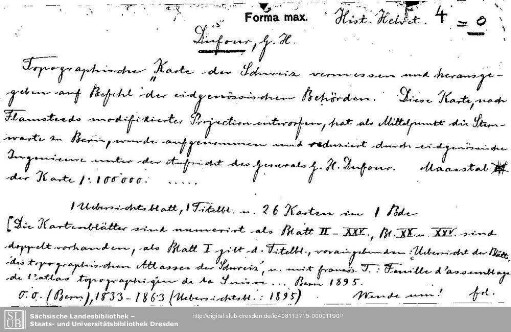 Forma max.
Hist. Helvet. 4
= 0
Dufour, G. H.
Topographische Karte der Schweiz vermessen und herausge-
geben auf Befehl der eidgenössischen Behörden. Diese Karte, nach
Flamsteeds modifizierter Projection entworfen, hat als Mittelpunkt die Stern-
warte in Bern, wurde aufgenommen und reduziert durch eidgenössische
Ingenieure unter der Aufsicht des Generals G. H. Dufour. Maasstab
der Karte 1:100'000. .....
1 Uebersichtsblatt, 1 Titelbl. u. 26 Karten in 1 Bde
[Die Kartenblätter sind numerirt als Blatt II - XXV, Bl. XX u. XXV sind
doppelt vorhanden, als Blatt I gilt d. Titelbl., vorangebunden: Uebersicht der Blätt.
des topographischen Atlasses der Schweiz, u. mit französ. T.: Feuille d'assemblage
de l'atlas topographique de la Suisse... Bern 1895.
O.O. (Bern), 1833-1863 (Uebersichtsbl.: 1895) Wende um! fol.
Sächsische Landesbibliothek –
Staats- und Universitätsbibliothek Dresden